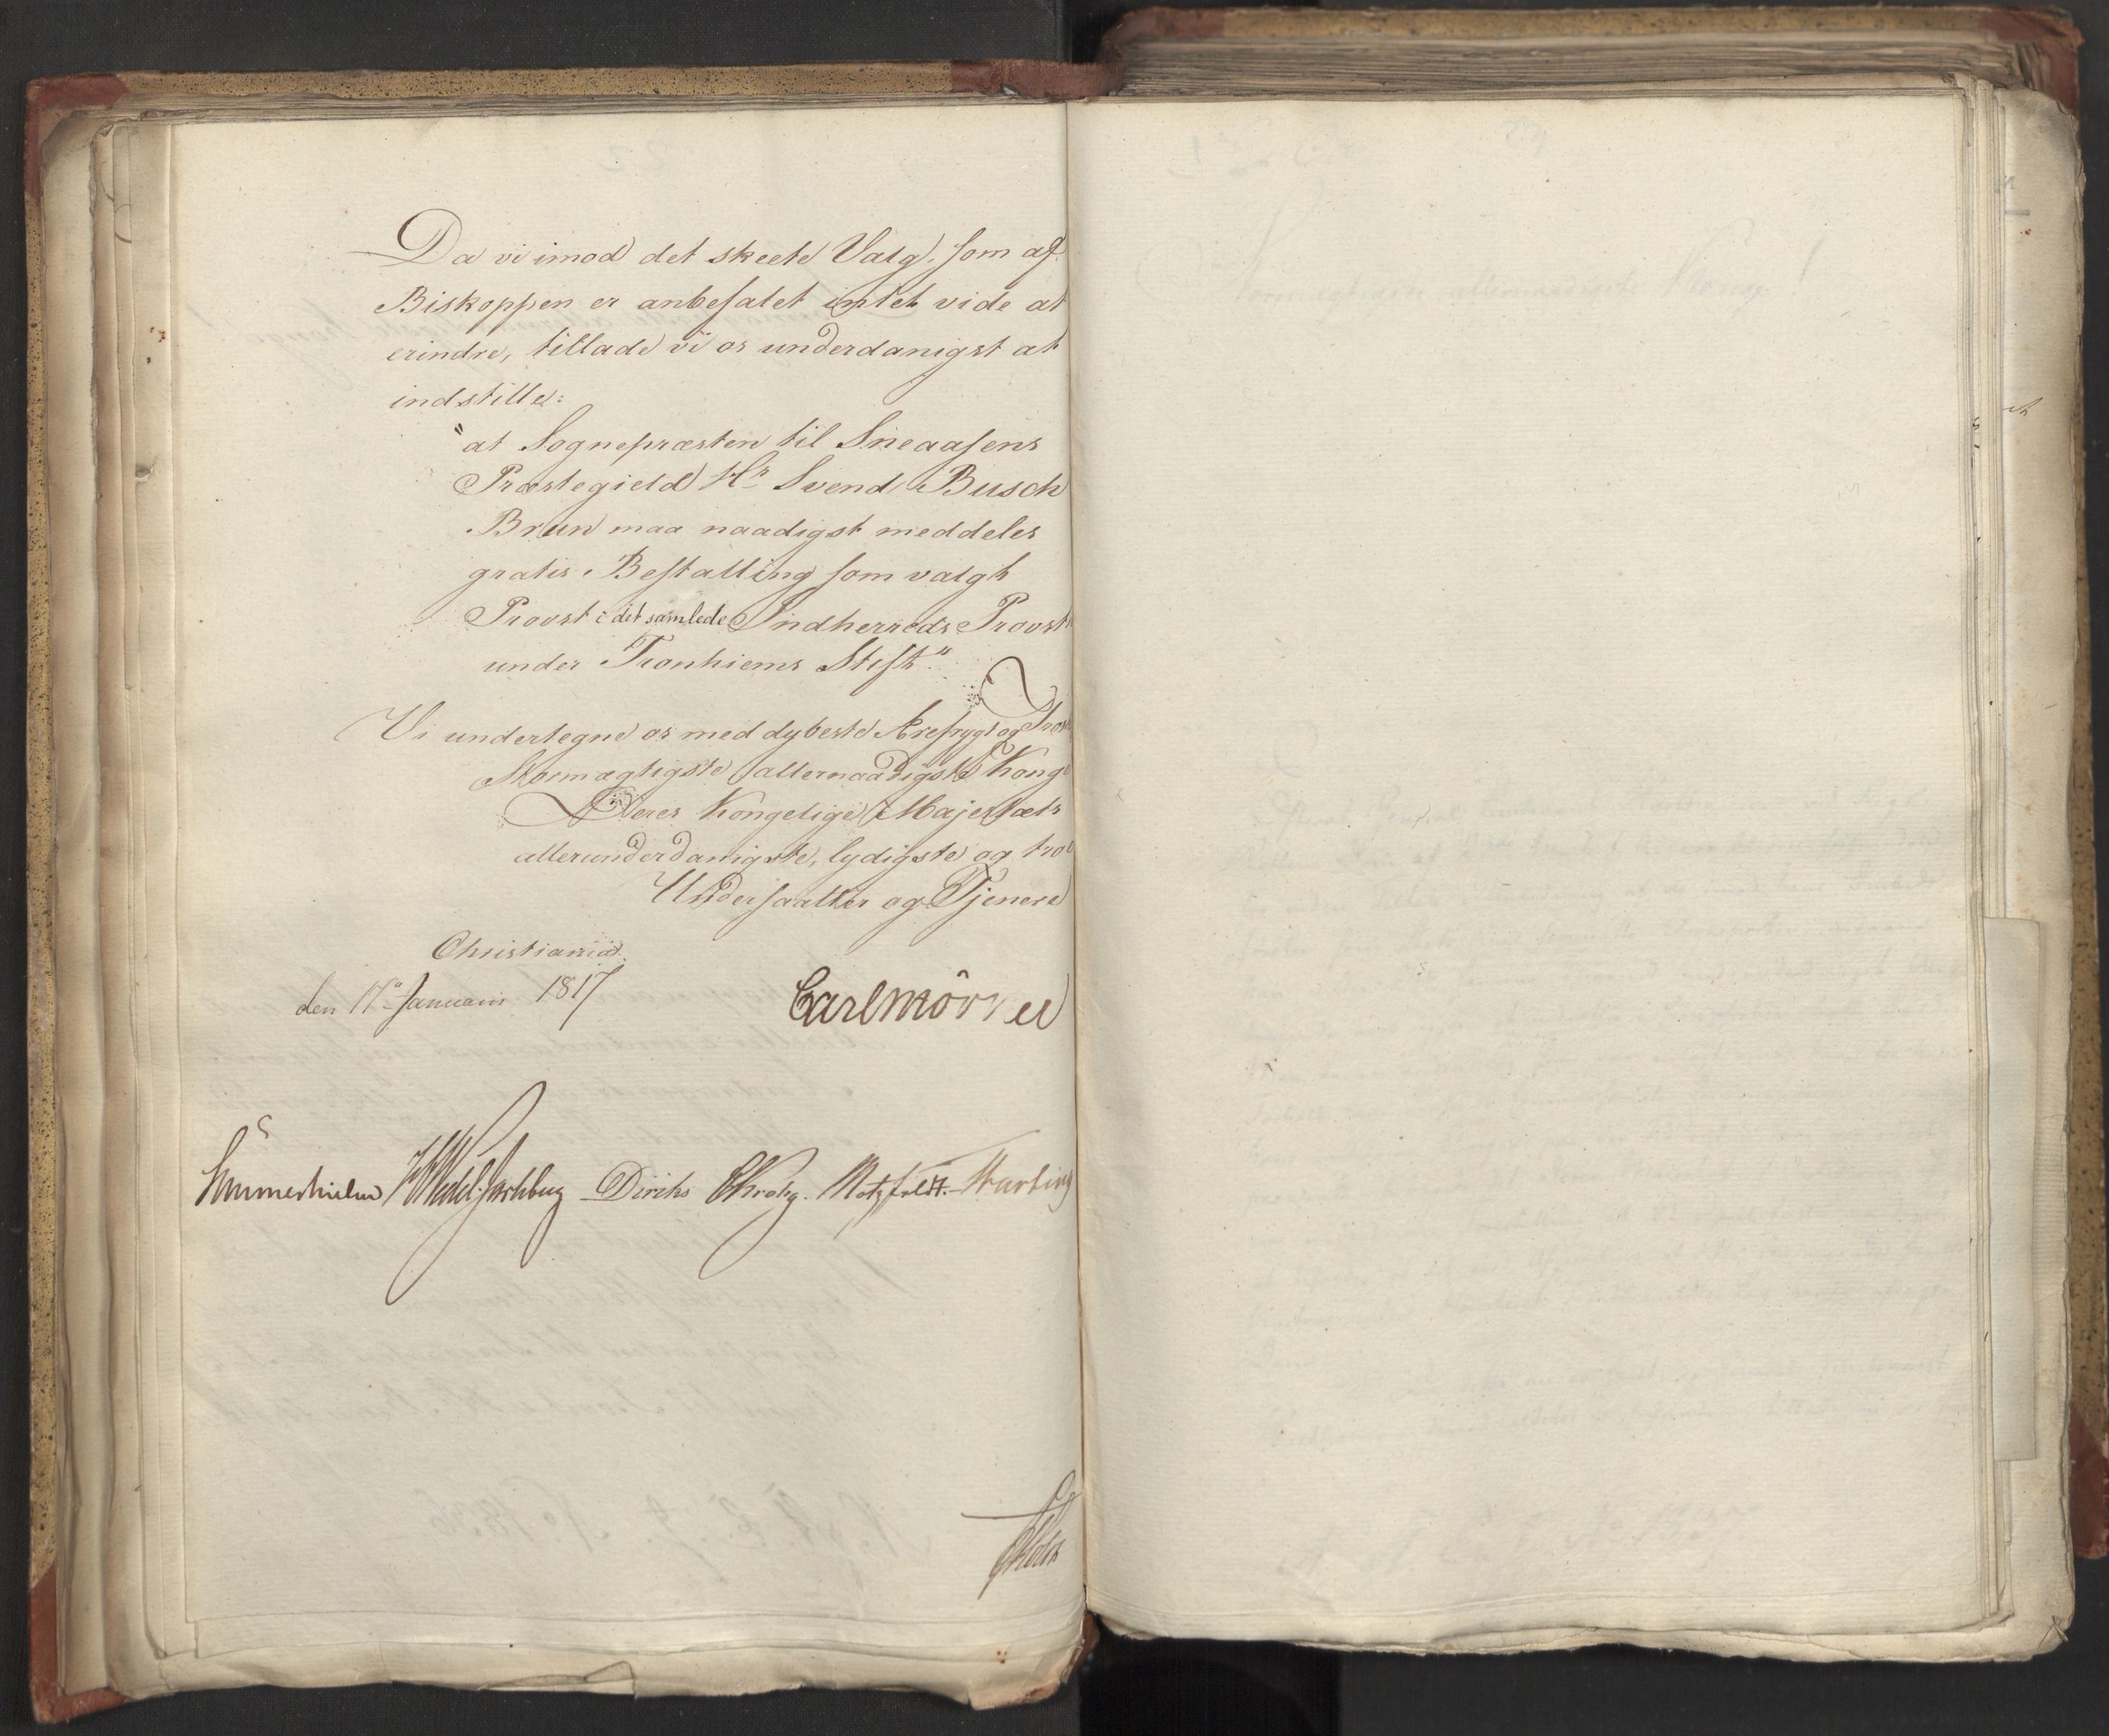 Da vi imod det skeete Valg, som af
Biskoppen er anbefalet intet vide at
erindre, tillade vi os underdanigst at
indstille:
"at Sognepræsten til Sneaasens
Præstegield Hr Svend Busch
Brun maa naadigst meddeles
gratis Bestalling som valgt
Provst i det samlede Indherreds Provst
under Tronhiems Stift."
Vi undertegne os med dybeste Ærefrygt og
Stormægtigste allernaadigste Konge
Deres Kongelige Majestæts
allerunderdanigste, lydigste og troe
Undersaatter og Tjenere
Christiania
den 17de Januarii 1817
Carl Mörner
Sommerhielm Wedel Jarlsberg Diriks CKrohg. Motzfeldt.
Holst